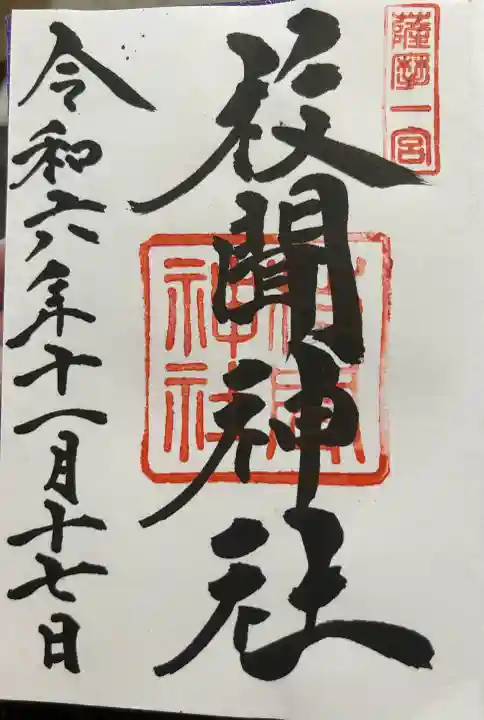 薩摩一宮
枚聞神社
枚聞神社
令和六年十一月十七日